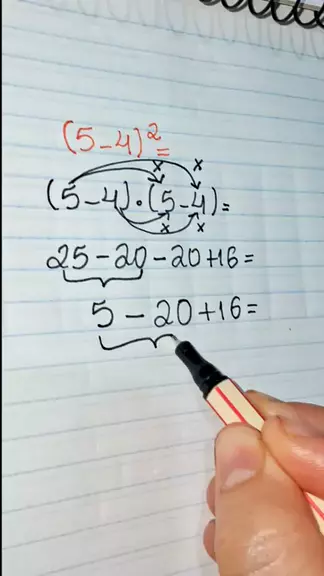 (5-4)²=
(5-4)·(5-4)=
x x
x x
25-20-20+16=
5-20+16=